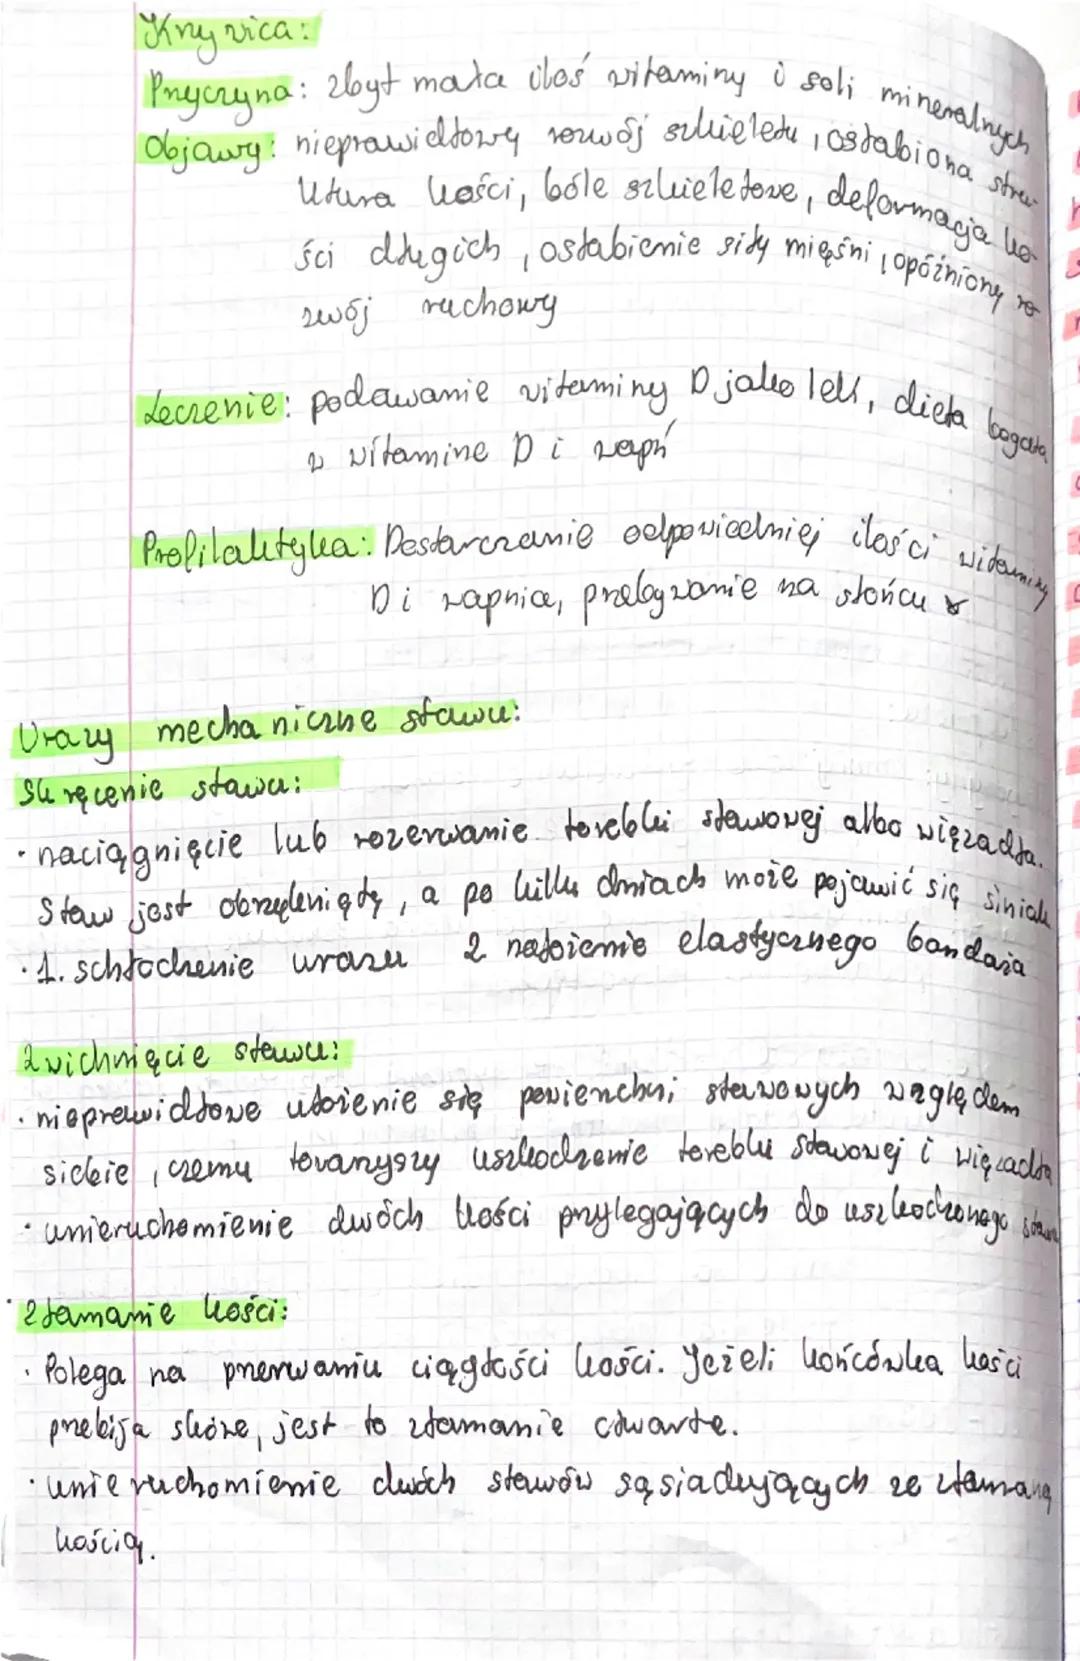 Krzywica:
Przyczyna: zbyt mała iloś witaminy i soli mineralnych
Objawy: nieprawidłowy rozwój szkieletu, osłabiona stru-
ktura kości, bóle szkieletowe, deformacja ko-
ści długich, osłabienie siły mięśni, opóźniony ro-
zwój ruchowy
Leczenie: podawanie witaminy D jako lek, dieta bogata
w witamine D i wapń
Profilaktyka: Dostarczanie odpowiedniej ilości witaminy
D i wapnia, przebywanie na słońcu
Urazy mechaniczne stawu:
Skręcenie stawu:
· naciągnięcie lub rozerwanie torebki stawowej albo więzadła.
Staw jest obrzęknięty, a po kilku dniach może pojawić się siniak
· 1. schłodzenie urazu 2 nałożenie elastycznego bandaża
Zwichnięcie stawu:
· nieprawidłowe ułożenie się powierzchni stawowych względem
siebie, czemu towarzyszy uszkodzenie torebki stawowej i więzadła
· unieruchomienie dwóch kości przylegających do uszkodzonego stawu
· Złamanie kości:
· Polega na przerwaniu ciągłości kości. Jeżeli końcówka kości
przebija skórę, jest to złamanie otwarte.
· unieruchomienie dwóch stawów sąsiadujących ze złamaną
kością.